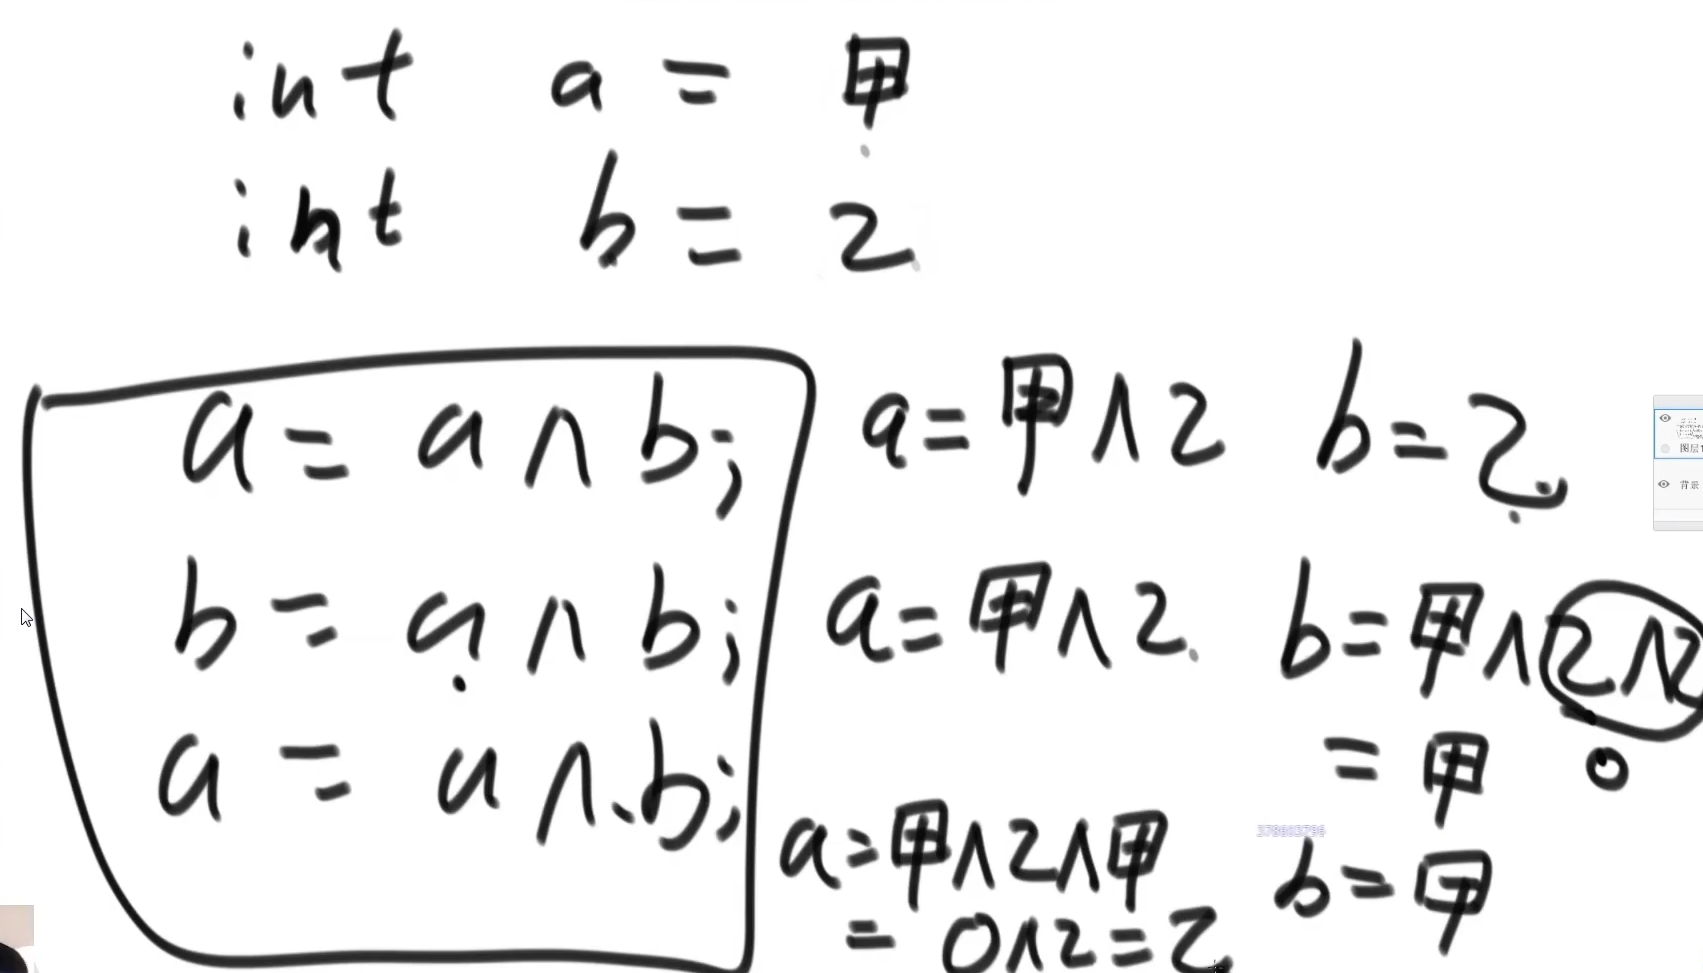 int a = 甲
int b = 乙
a = a ∧ b; a = 甲 ∧ 乙 b = 乙
b = a ∧ b; a = 甲 ∧ 乙 b = 甲 ∧ 乙 ∧ 乙
= 甲 0
a = a ∧ b; a = 甲 ∧ 乙 ∧ 甲 b = 甲
= 0 ∧ 乙 = 乙
378603796
图层1
背景